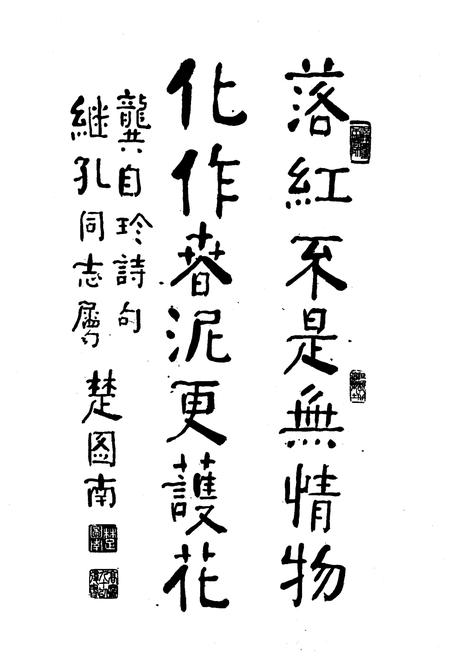 落紅不是無情物
化作春泥更護花
龔自珍詩句
継孔同志屬
楚图南